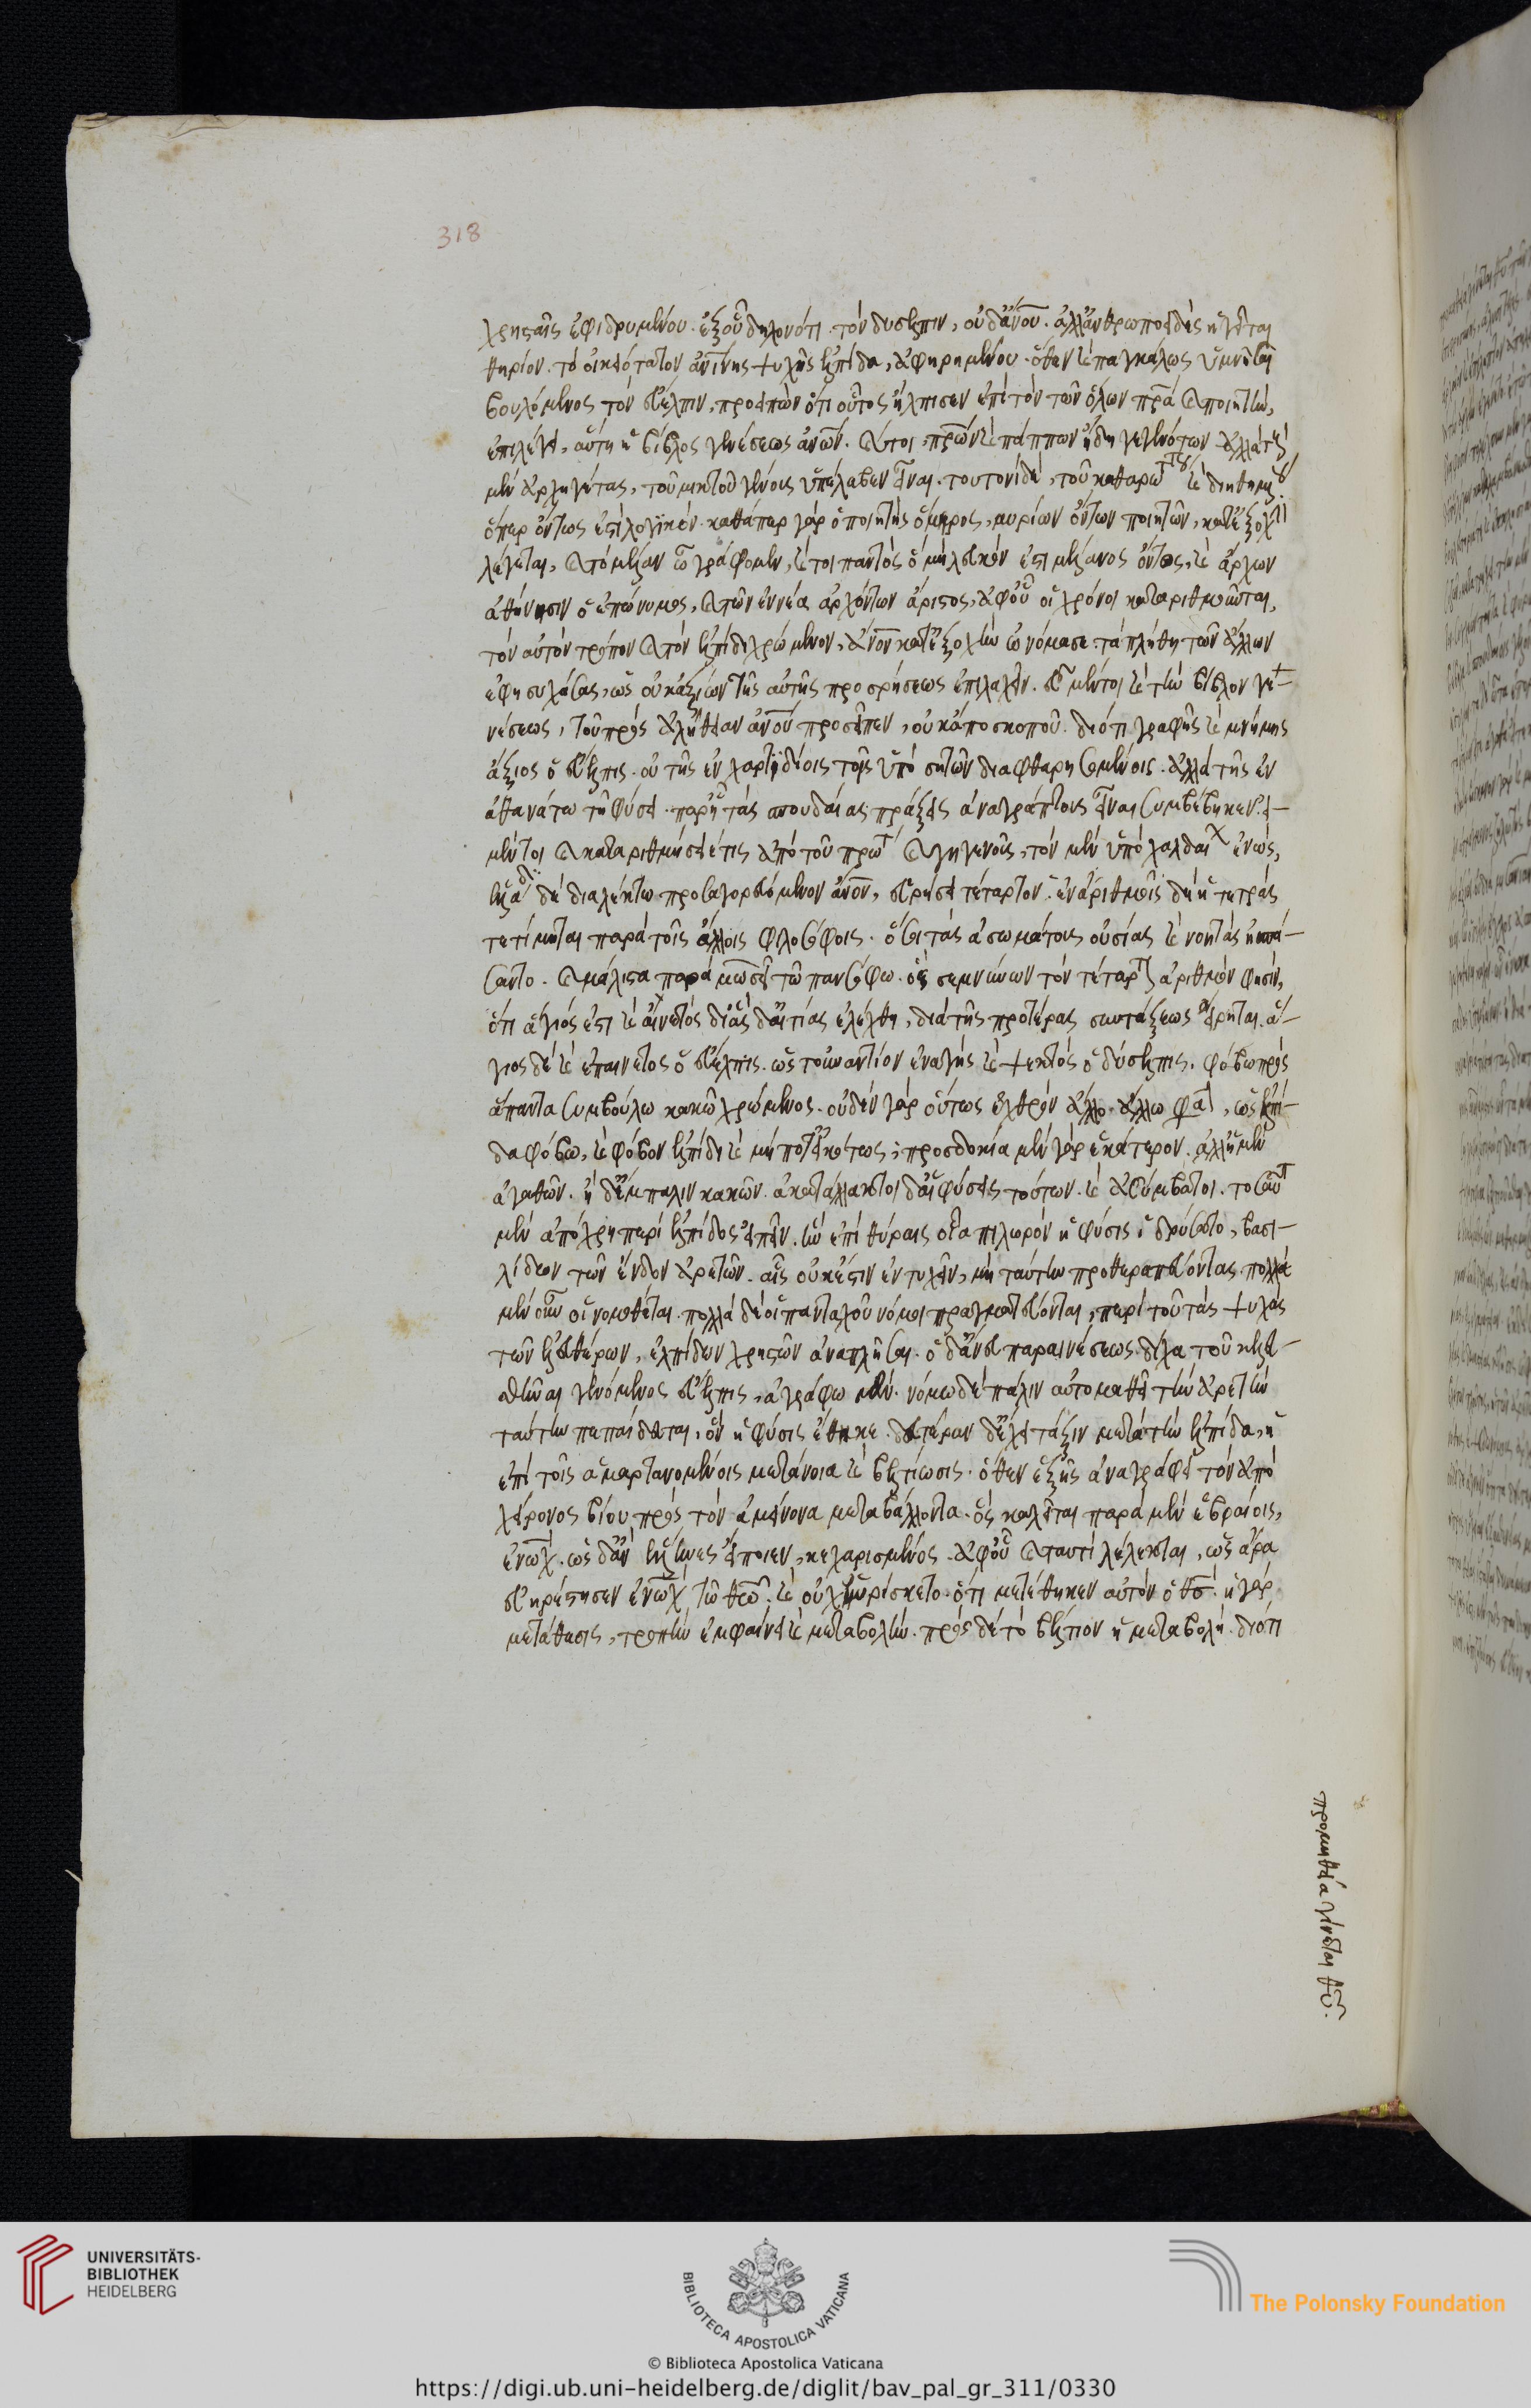 318
χρησταῖς ἐφιδρυμένου. ἐξ οὗ δηλονότι τὸν δυσέλπιν, οὐδ' ἄνον. ἀλλ' ἀνθρωποειδὲς ἡγεῖται
θηρίον. τὸ οἰκειότατον ἀνίνης ψυχῆς ἐλπίδα, ἀφηρημένον. ὅθεν καὶ παγκάλως ὑμνῆσαι
βουλόμενος τὸν εὔελπιν, προειπὼν ὅτι οὗτος ἤλπισεν ἐπὶ τὸν τῶν ὅλων πρα καὶ ποιητὴν,
ἐπιλέγει, αὕτη ἡ βίβλος γενέσεως ἀνων. καίτοι πρων καὶ πάππων ἤδη γεγενότων ἀλλὰ τοὺς
μὲν ἀρχηγέτας, τοῦ μικτοῦ γένους ὑπέλαβεν εἶναι. τουτονὶ δὲ, τοῦ καθαρωτάτου καὶ διηθημένου
ὅπερ ὄντως ἐστὶ λογικόν. καθάπερ γὰρ ὁ ποιητὴς ὅμηρος, μυρίων ὄντων ποιητῶν, κατ' ἐξοχὴν
λέγεται, καὶ τὸ μέλαν ᾧ γράφομεν, καίτοι παντὸς ὃ μὴ λευκόν ἐστι μέλανος ὄντος, καὶ ἄρχων
ἀθήνησιν ὁ ἐπώνυμος, καὶ τῶν ἐννέα ἀρχόντων ἄριστος, ἀφ' οὗ οἱ χρόνοι καταριθμοῦνται,
τὸν αὐτὸν τρόπον καὶ τὸν ἐλπίδι χρώμενον, ἄνον κατ' ἐξοχὴν ὠνόμασε. τὰ πλήθη τῶν ἄλλων
ἐφησυχάσας, ὡς οὐκ ἀξίων τῆς αὐτῆς προσρήσεως ἐπιλαχεῖν. εὖ μέντοι καὶ τὴν βίβλον γε-
νέσεως, τοῦ πρὸς ἀλήθειαν ἀνου προσεῖπεν, οὐκ ἀπὸ σκοποῦ. διότι γραφῆς καὶ μνήμης
ἄξιος ὁ εὔελπις. οὐ τῆς ἐν χαρτιδίοις τοῖς ὑπὸ σητῶν διαφθαρησομένοις. ἀλλὰ τῆς ἐν
ἀθανάτω τῇ φύσει. παρ' ᾗ τὰς σπουδαίας πράξεις ἀναγράπτους εἶναι συμβέβηκεν. εἰ
μέντοι καταριθμήσειέ τις ἀπὸ τοῦ πρώτου καὶ γηγενοῦς, τὸν μὲν ὑπὸ χαλδαίων ἐνώς,
ἑλλάδι δὲ διαλέκτω προσαγορευόμενον ἄνον, εὑρήσει τέταρτον. ἐν ἀριθμοῖς δὲ ἡ τετρὰς
τετίμηται παρά τοῖς ἄλλοις φιλοσόφοις. ὅσοι τὰς ἀσωμάτους οὐσίας καὶ νοητὰς ἠσπά-
σαντο. καὶ μάλιστα παρὰ μωσεῖ τῶ πανσόφω. ὃς σεμνύνων τὸν τέταρτον ἀριθμόν φησὶν,
ὅτι ἅγιός ἐστι καὶ αἰνετός. δι' ἃς δ' αἰτίας ἐλέχθη, διὰ τῆς προτέρας συντάξεως εἴρηται. ἅ-
γιος δὲ καὶ ἐπαινετὸς ὁ εὔελπις. ὡς τοὐναντίον ἐναγὴς καὶ ψεκτὸς ὁ δύσελπις. φόβω πρὸς
ἅπαντα συμβούλω κακῶ χρώμενος. οὐδὲν γὰρ οὕτως ἐχθρὸν ἄλλο ἄλλω φασὶν, ὡς ἐλπί-
δα φόβω, καὶ φόβον ἐλπίδι καὶ μήποτ' εἰκότως. προσδοκία μὲν γὰρ ἑκάτερον. ἀλλ' ἡ μὲν
ἀγαθῶν. ἡ δ' ἔμπαλιν κακῶν. ἀκατάλλακτοι δ' αἱ φύσεις τούτων. καὶ ἀσύμβατοι. τοσαῦτα
μὲν ἀπόχρη περὶ ἐλπίδος εἰπεῖν. ἣν ἐπὶ θύραις οἷα πυλωρὸν ἡ φύσις ἱδρύσατο, βασι-
λίδων τῶν ἔνδον ἀρετῶν. αἷς οὐκ ἔστιν ἐντυχεῖν, μὴ ταύτην προθεραπεύοντας. πολλὰ
μὲν οὖν οἱ νομοθέται. πολλὰ δὲ οἱ πανταχοῦ νόμοι πραγματεύονται, περὶ τοῦ τὰς ψυχὰς
τῶν ἐλευθέρων, ἐλπίδων χρηστῶν ἀναπλῆσαι. ὁ δ' ἄνευ παραινέσεως δίχα τοῦ κελευ-
σθῆναι γενόμενος εὔελπις, ἀγράφω μὲν. νόμω δὲ πάλιν αὐτομαθεῖ τὴν ἀρετὴν
ταύτην πεπαίδευται, ὃν ἡ φύσις ἔθηκε. δευτέραν δ' ἔχει τάξιν μετὰ τὴν ἐλπίδα, ἡ
ἐπὶ τοῖς ἁμαρτανομένοις μετάνοια καὶ βελτίωσις. ὅθεν ἑξῆς ἀναγράφει τὸν ἀπὸ
χείρονος βίου πρὸς τὸν ἀμείνονα μεταβάλλοντα. ὃς καλεῖται παρὰ μὲν ἑβραίοις,
ἐνώχ. ὡς δ' ἂν ἕλληνες εἴποιεν, κεχαρισμένος. ἀφ' οὗ καὶ ταυτὶ λέλεκται, ὡς ἄρα
εὐηρέστησεν ἐνὼχ τῶ θεῶ. καὶ οὐχ ηὑρίσκετο. ὅτι μετέθηκεν αὐτὸν ὁ θς. ἡ γὰρ
μετάθεσις, τροπὴν ἐμφαίνει καὶ μεταβολήν. πρὸς δὲ τὸ βέλτιον ἡ μεταβολή. διότι
προμηθεία γίνεται θυ.
UNIVERSITÄTS-
BIBLIOTHEK
HEIDELBERG
BIBLIOTECA APOSTOLICA VATICANA
The Polonsky Foundation
© Biblioteca Apostolica Vaticana
https://digi.ub.uni-heidelberg.de/diglit/bav_pal_gr_311/0330